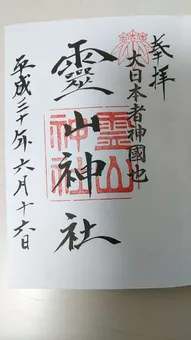 奉拝
大日本者神國也
靈山神社
霊山
神社
平成三十年六月十六日